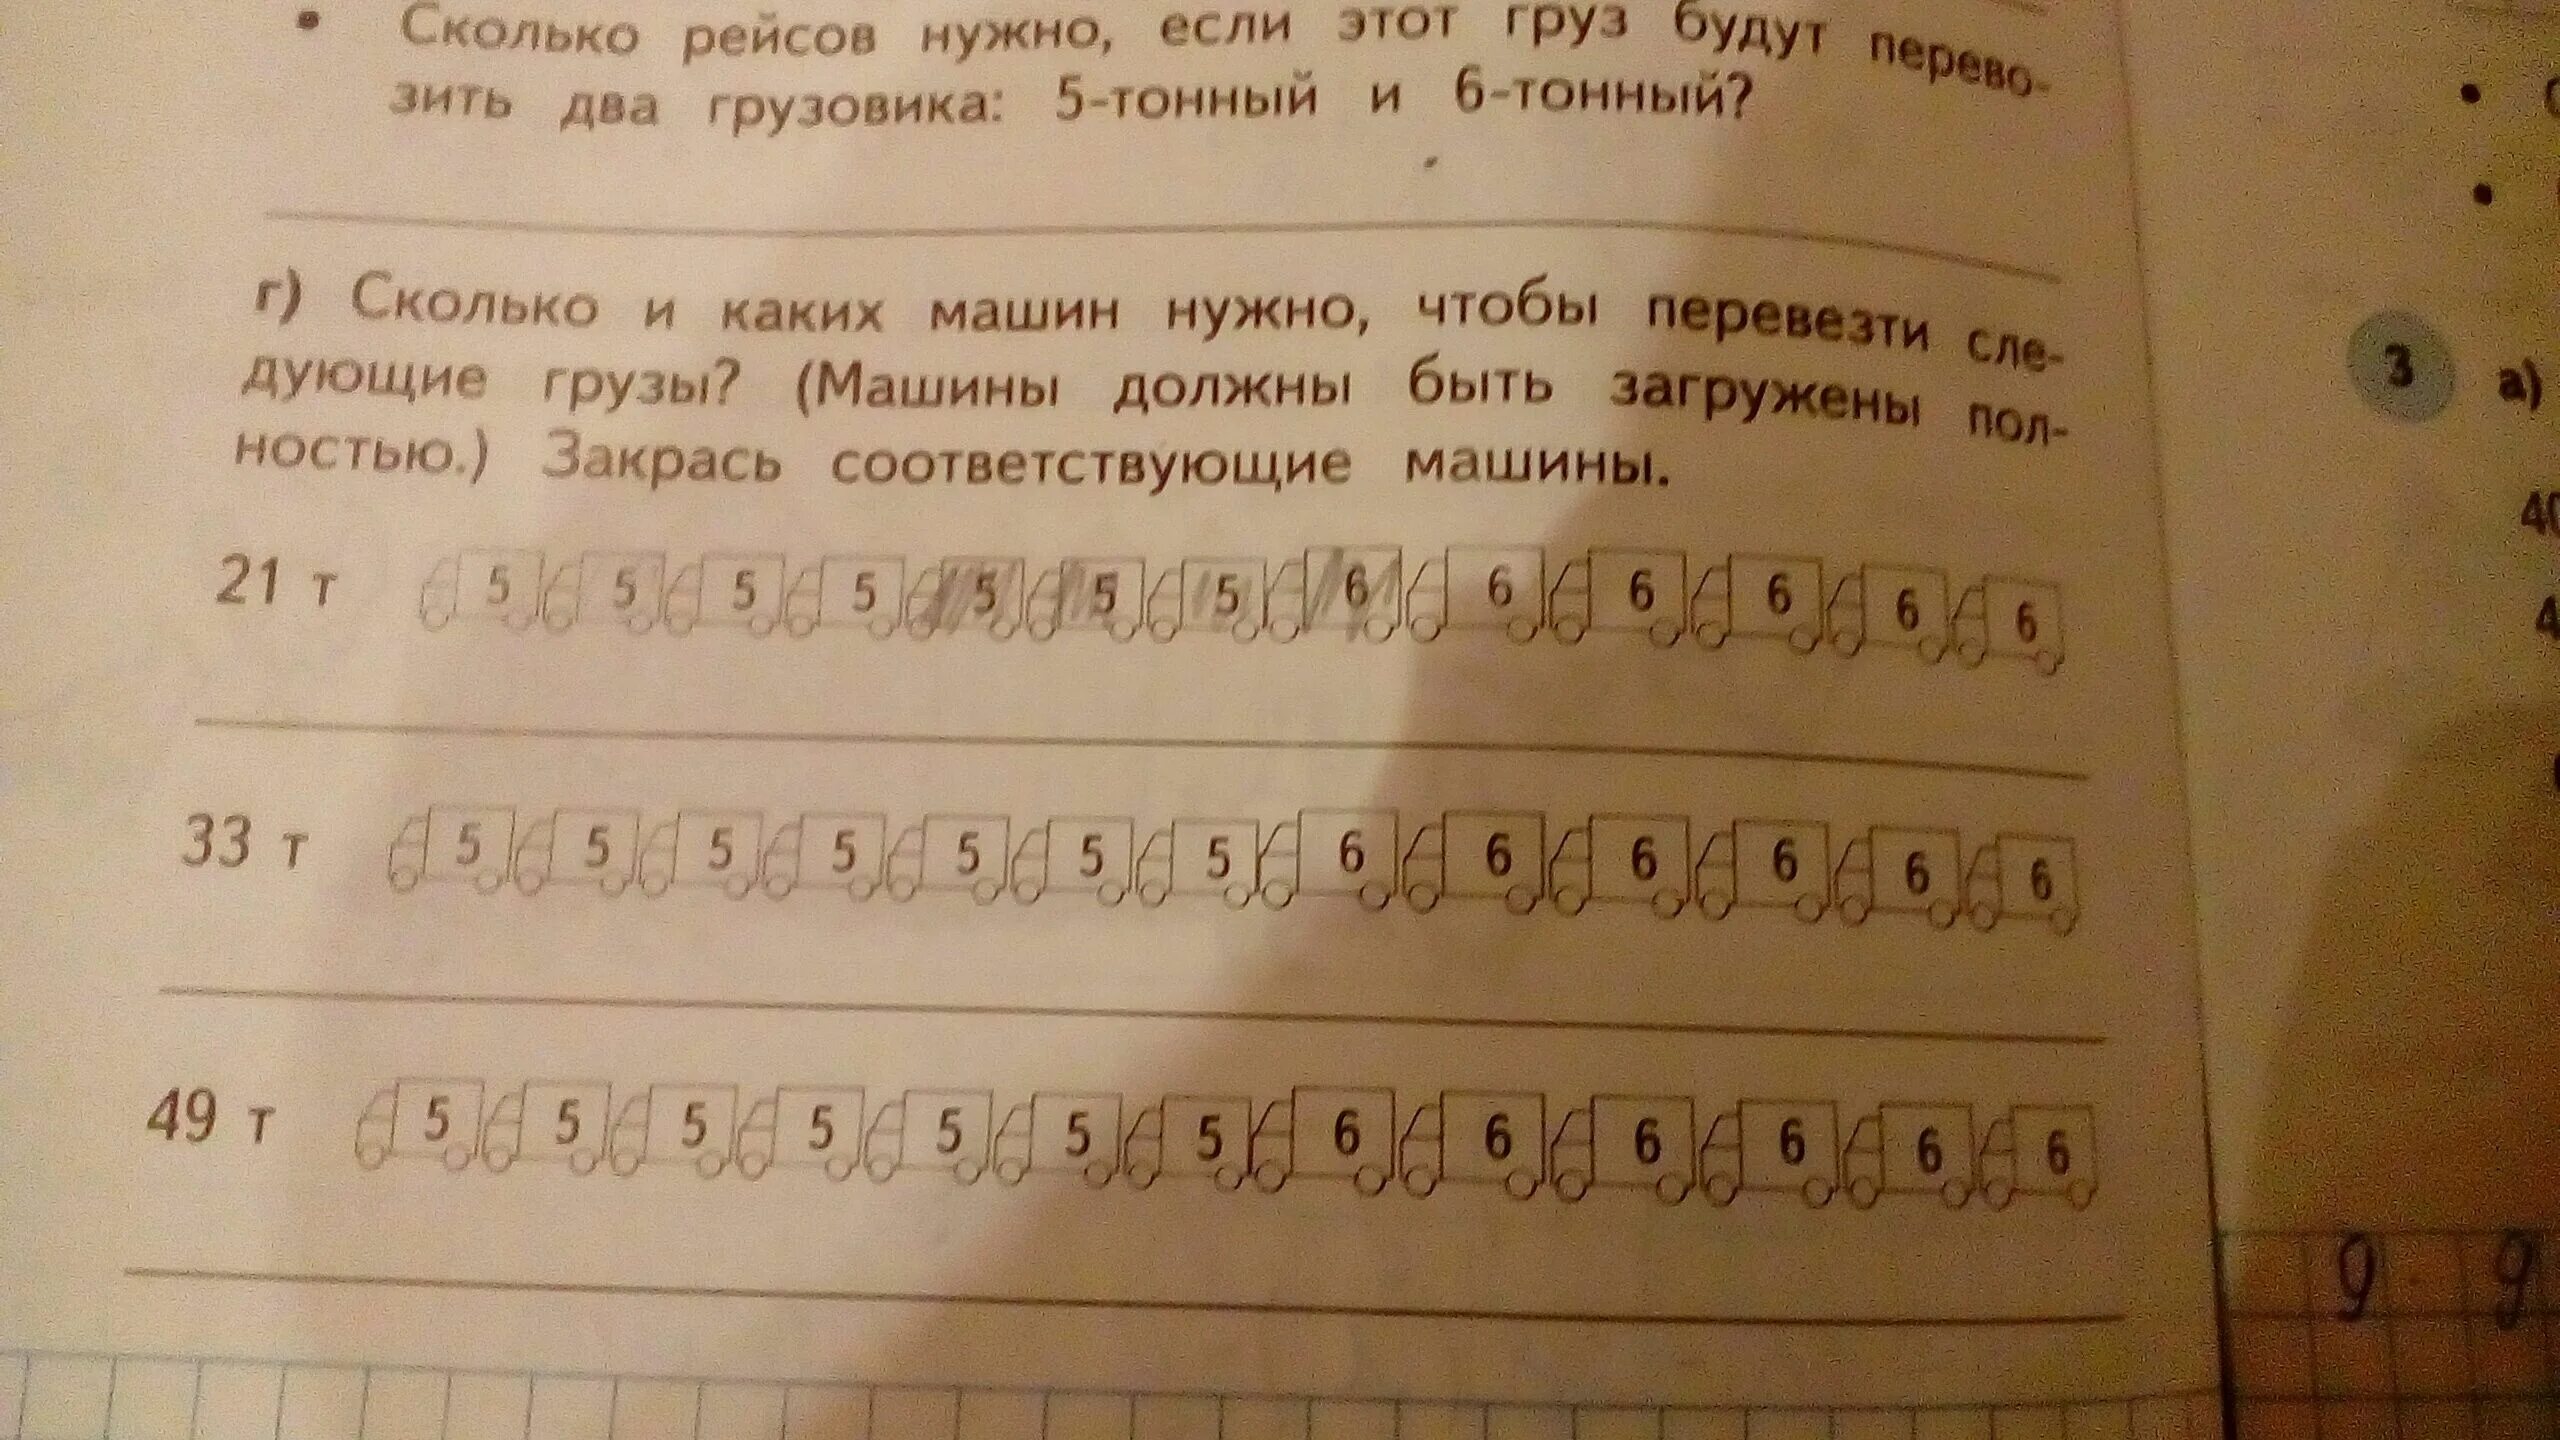 • Сколько рейсов нужно, если этот груз будут перево-
зить два грузовика: 5-тонный и 6-тонный?
г) Сколько и каких машин нужно, чтобы перевезти сле-
дующие грузы? (Машины должны быть загружены пол-
ностью.) Закрась соответствующие машины.
21 т 5 5 5 5 5 5 5 6 6 6 6 6 6
33 т 5 5 5 5 5 5 5 6 6 6 6 6 6
49 т 5 5 5 5 5 5 5 6 6 6 6 6 6
3 а)
40
4
9 9